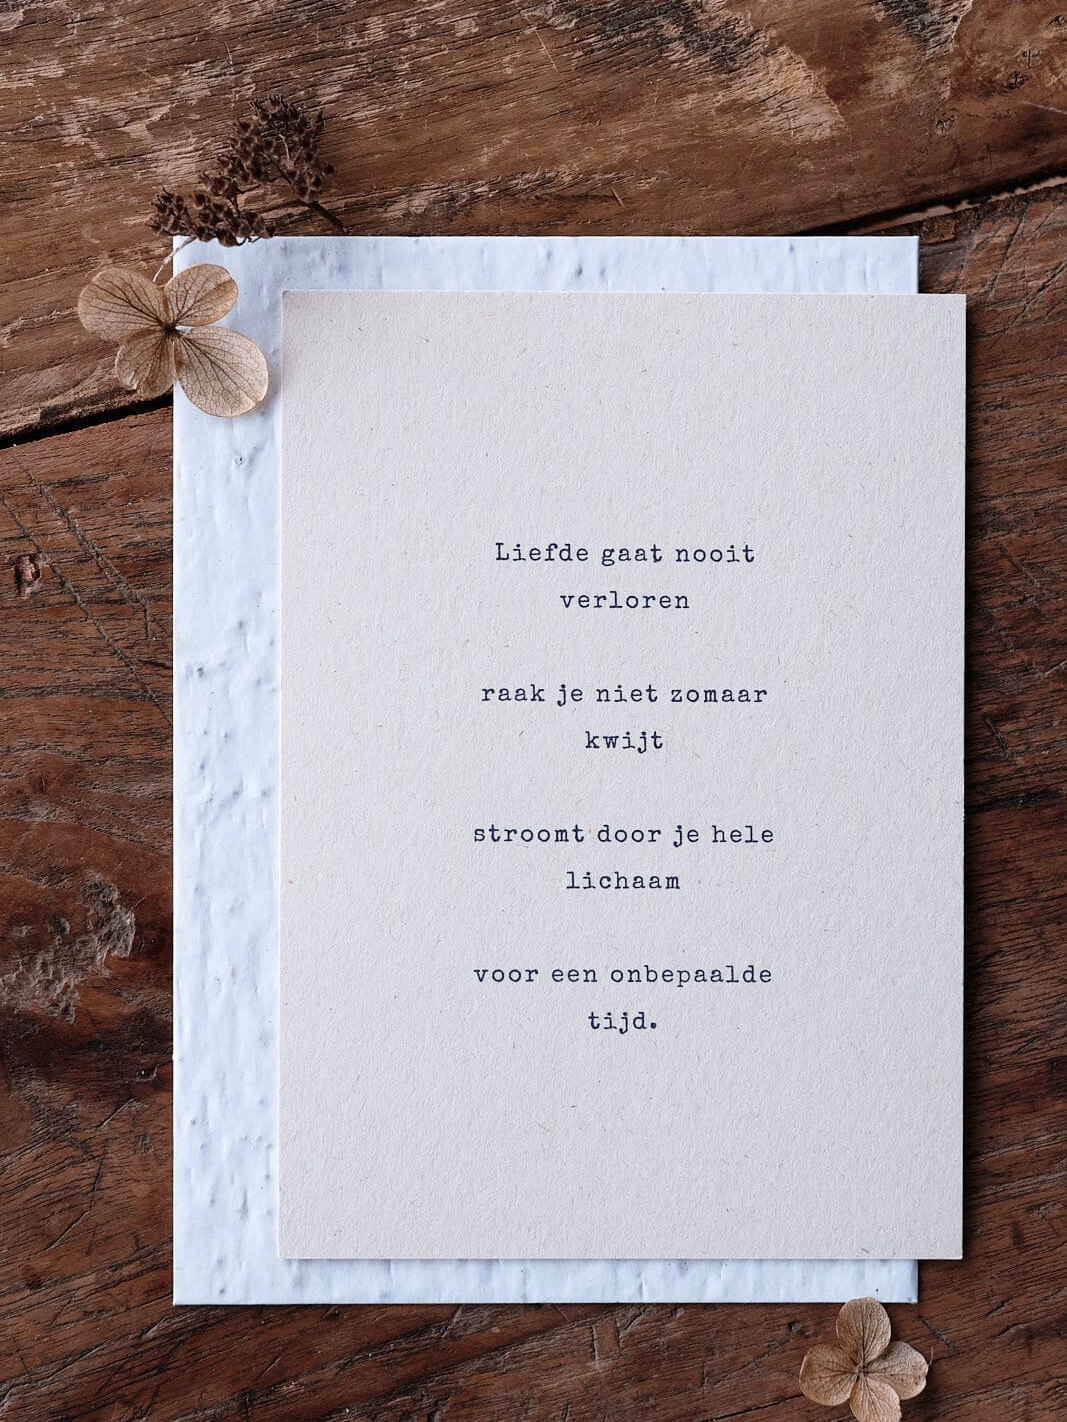 Liefde gaat nooit
verloren
raak je niet zomaar
kwijt
stroomt door je hele
lichaam
voor een onbepaalde
tijd.